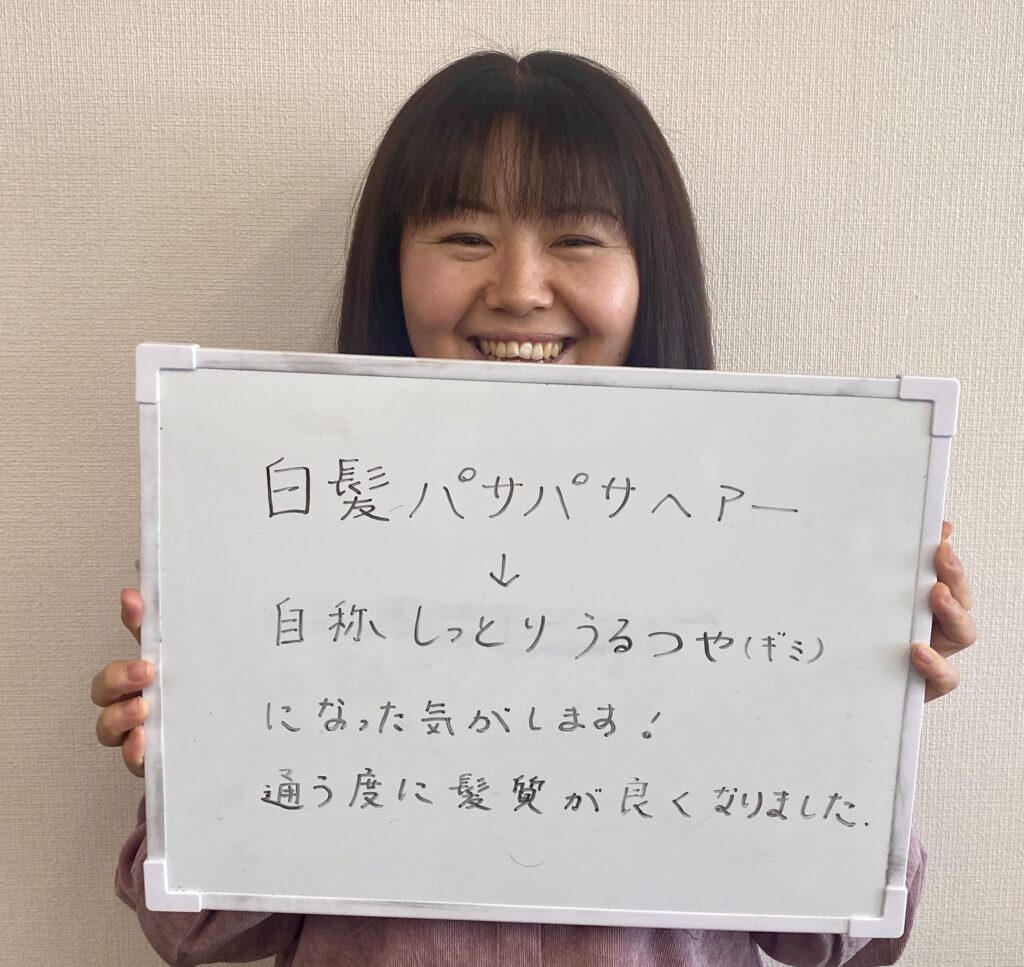 白髪パサパサヘアー
↓
自称しっとりうるつや(ギミ)
になった気がします!
通う度に髪質が良くなりました.